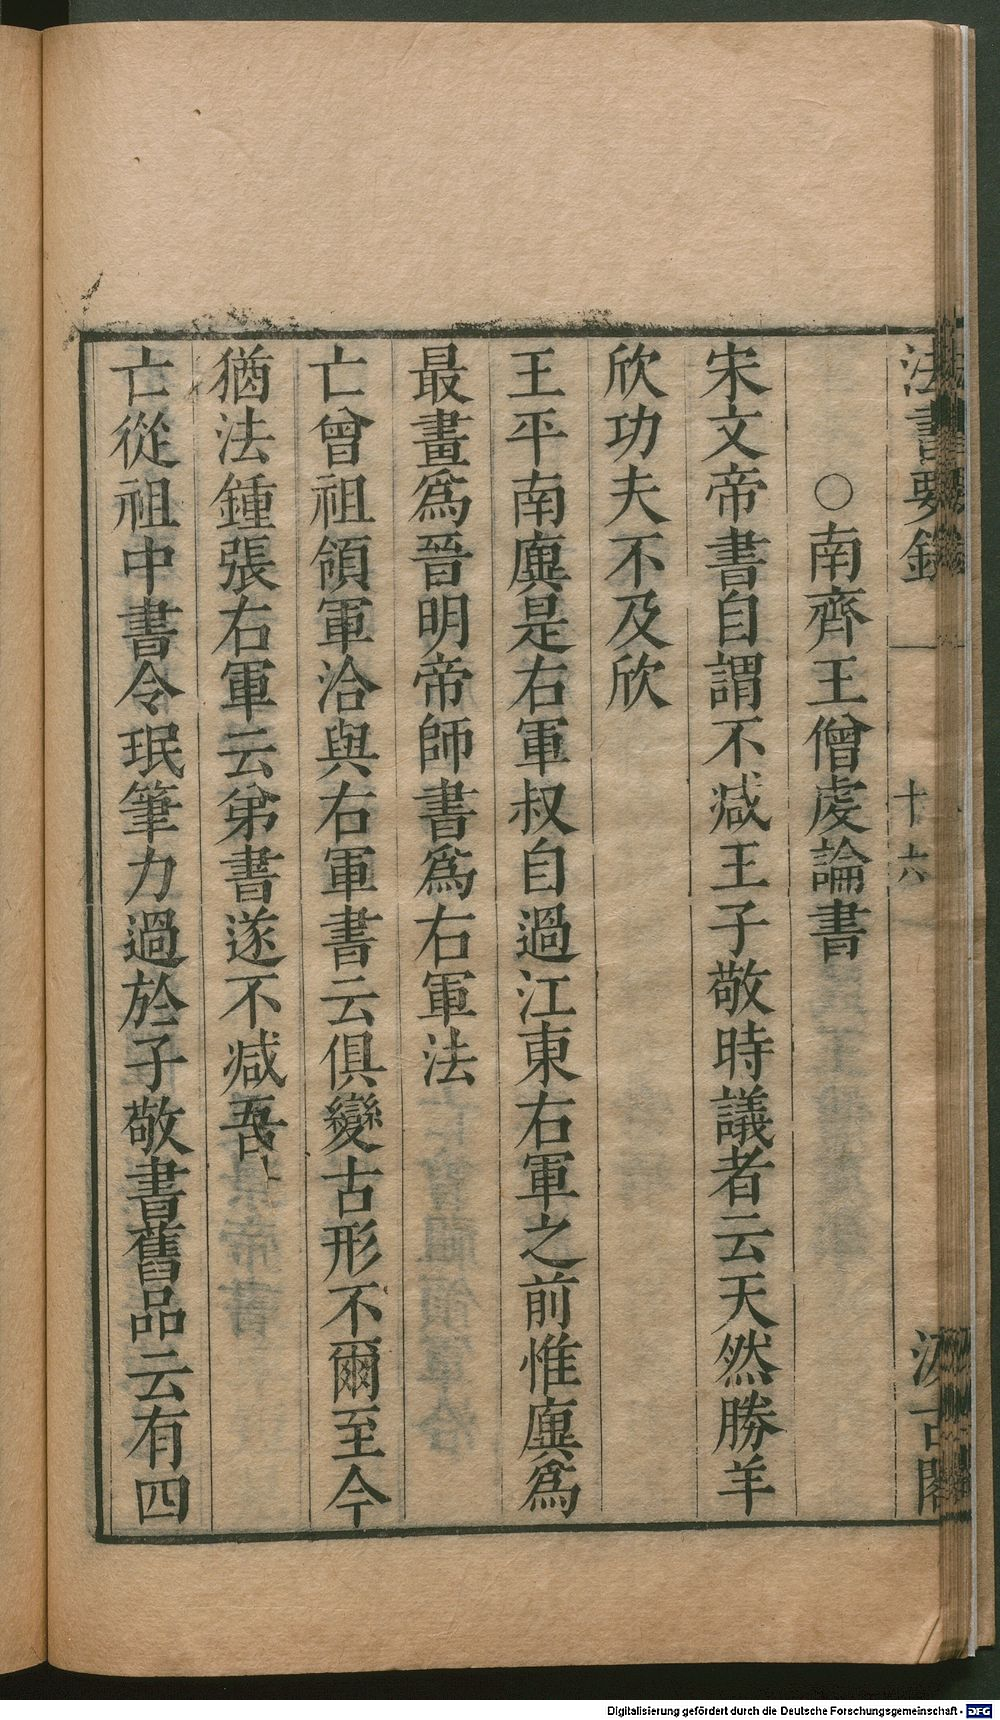 法書要錄
十六
汲古閣
○南齊王僧虔論書
宋文帝書自謂不減王子敬時議者云天然勝羊
欣功夫不及欣
王平南廙是右軍叔自過江東右軍之前惟廙爲
最畫爲晉明帝師書爲右軍法
亡曾祖領軍洽與右軍書云俱變古形不爾至今
猶法鍾張右軍云弟書遂不減吾
亡從祖中書令珉筆力過於子敬書舊品云有四
Digitalisierung gefördert durch die Deutsche Forschungsgemeinschaft - DFG